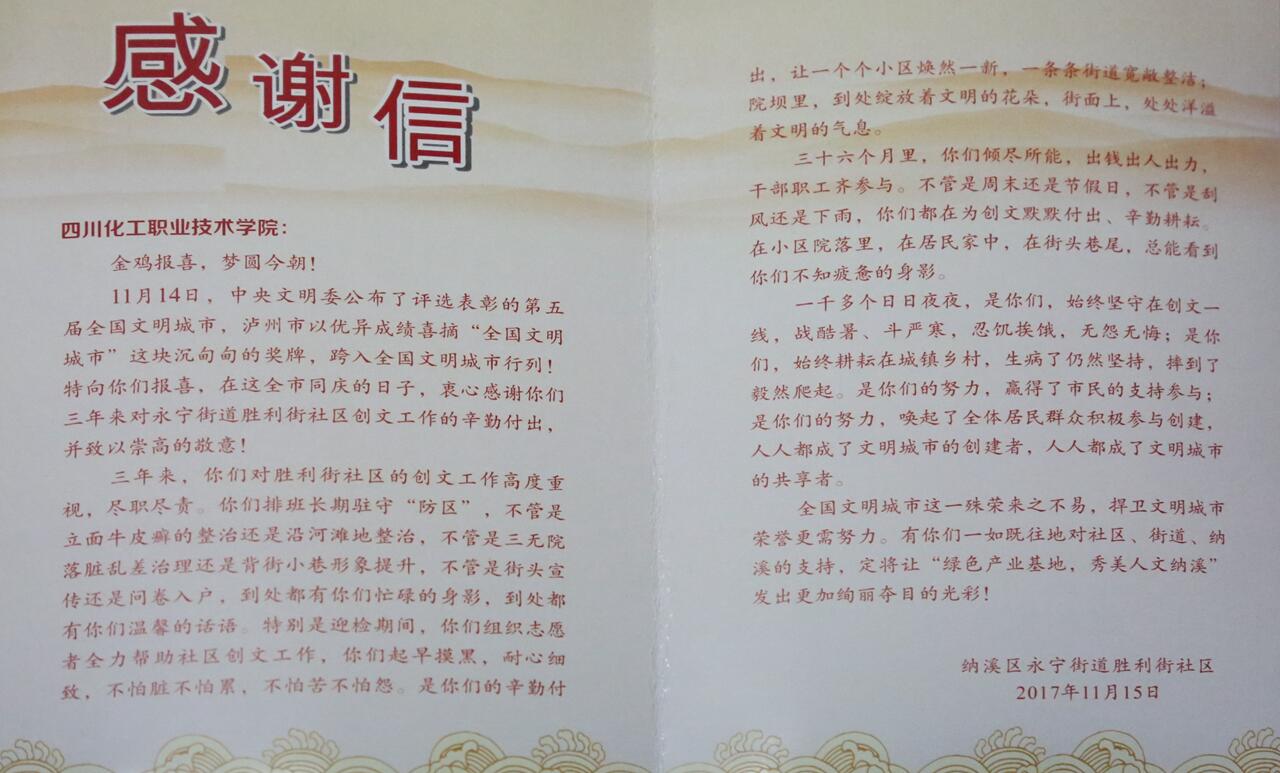 感谢信
四川化工职业技术学院：
金鸡报喜，梦圆今朝！
11月14日，中央文明委公布了评选表彰的第五
届全国文明城市，泸州市以优异成绩喜摘“全国文明
城市”这块沉甸甸的奖牌，跨入全国文明城市行列！
特向你们报喜，在这全市同庆的日子，衷心感谢你们
三年来对永宁街道胜利街社区创文工作的辛勤付出，
并致以崇高的敬意！
三年来，你们对胜利街社区的创文工作高度重
视，尽职尽责。你们排班长期驻守“防区”，不管是
立面牛皮癣的整治还是沿河滩地整治，不管是三无院
落脏乱差治理还是背街小巷形象提升，不管是街头宣
传还是问卷入户，到处都有你们忙碌的身影，到处都
有你们温馨的话语。特别是迎检期间，你们组织志愿
者全力帮助社区创文工作，你们起早摸黑，耐心细
致，不怕脏不怕累，不怕苦不怕怨。是你们的辛勤付
出，让一个个小区焕然一新，一条条街道宽敞整洁；
院坝里，到处绽放着文明的花朵，街面上，处处洋溢
着文明的气息。
三十六个月里，你们倾尽所能，出钱出人出力，
干部职工齐参与。不管是周末还是节假日，不管是刮
风还是下雨，你们都在为创文默默付出、辛勤耕耘。
在小区院落里，在居民家中，在街头巷尾，总能看到
你们不知疲惫的身影。
一千多个日日夜夜，是你们，始终坚守在创文一
线，战酷暑、斗严寒，忍饥挨俄，无怨无悔；是你
们，始终耕耘在城镇乡村，生病了仍然坚持，摔到了
毅然爬起。是你们的努力，赢得了市民的支持参与；
是你们的努力，唤起了全体居民群众积极参与创建，
人人都成了文明城市的创建者，人人都成了文明城市
的共享者。
全国文明城市这一殊荣来之不易，捍卫文明城市
荣誉更需努力。有你们一如既往地对社区、街道、纳
溪的支持，定将让“绿色产业基地，秀美人文纳溪”
发出更加绚丽夺目的光彩！
纳溪区永宁街道胜利街社区
2017年11月15日